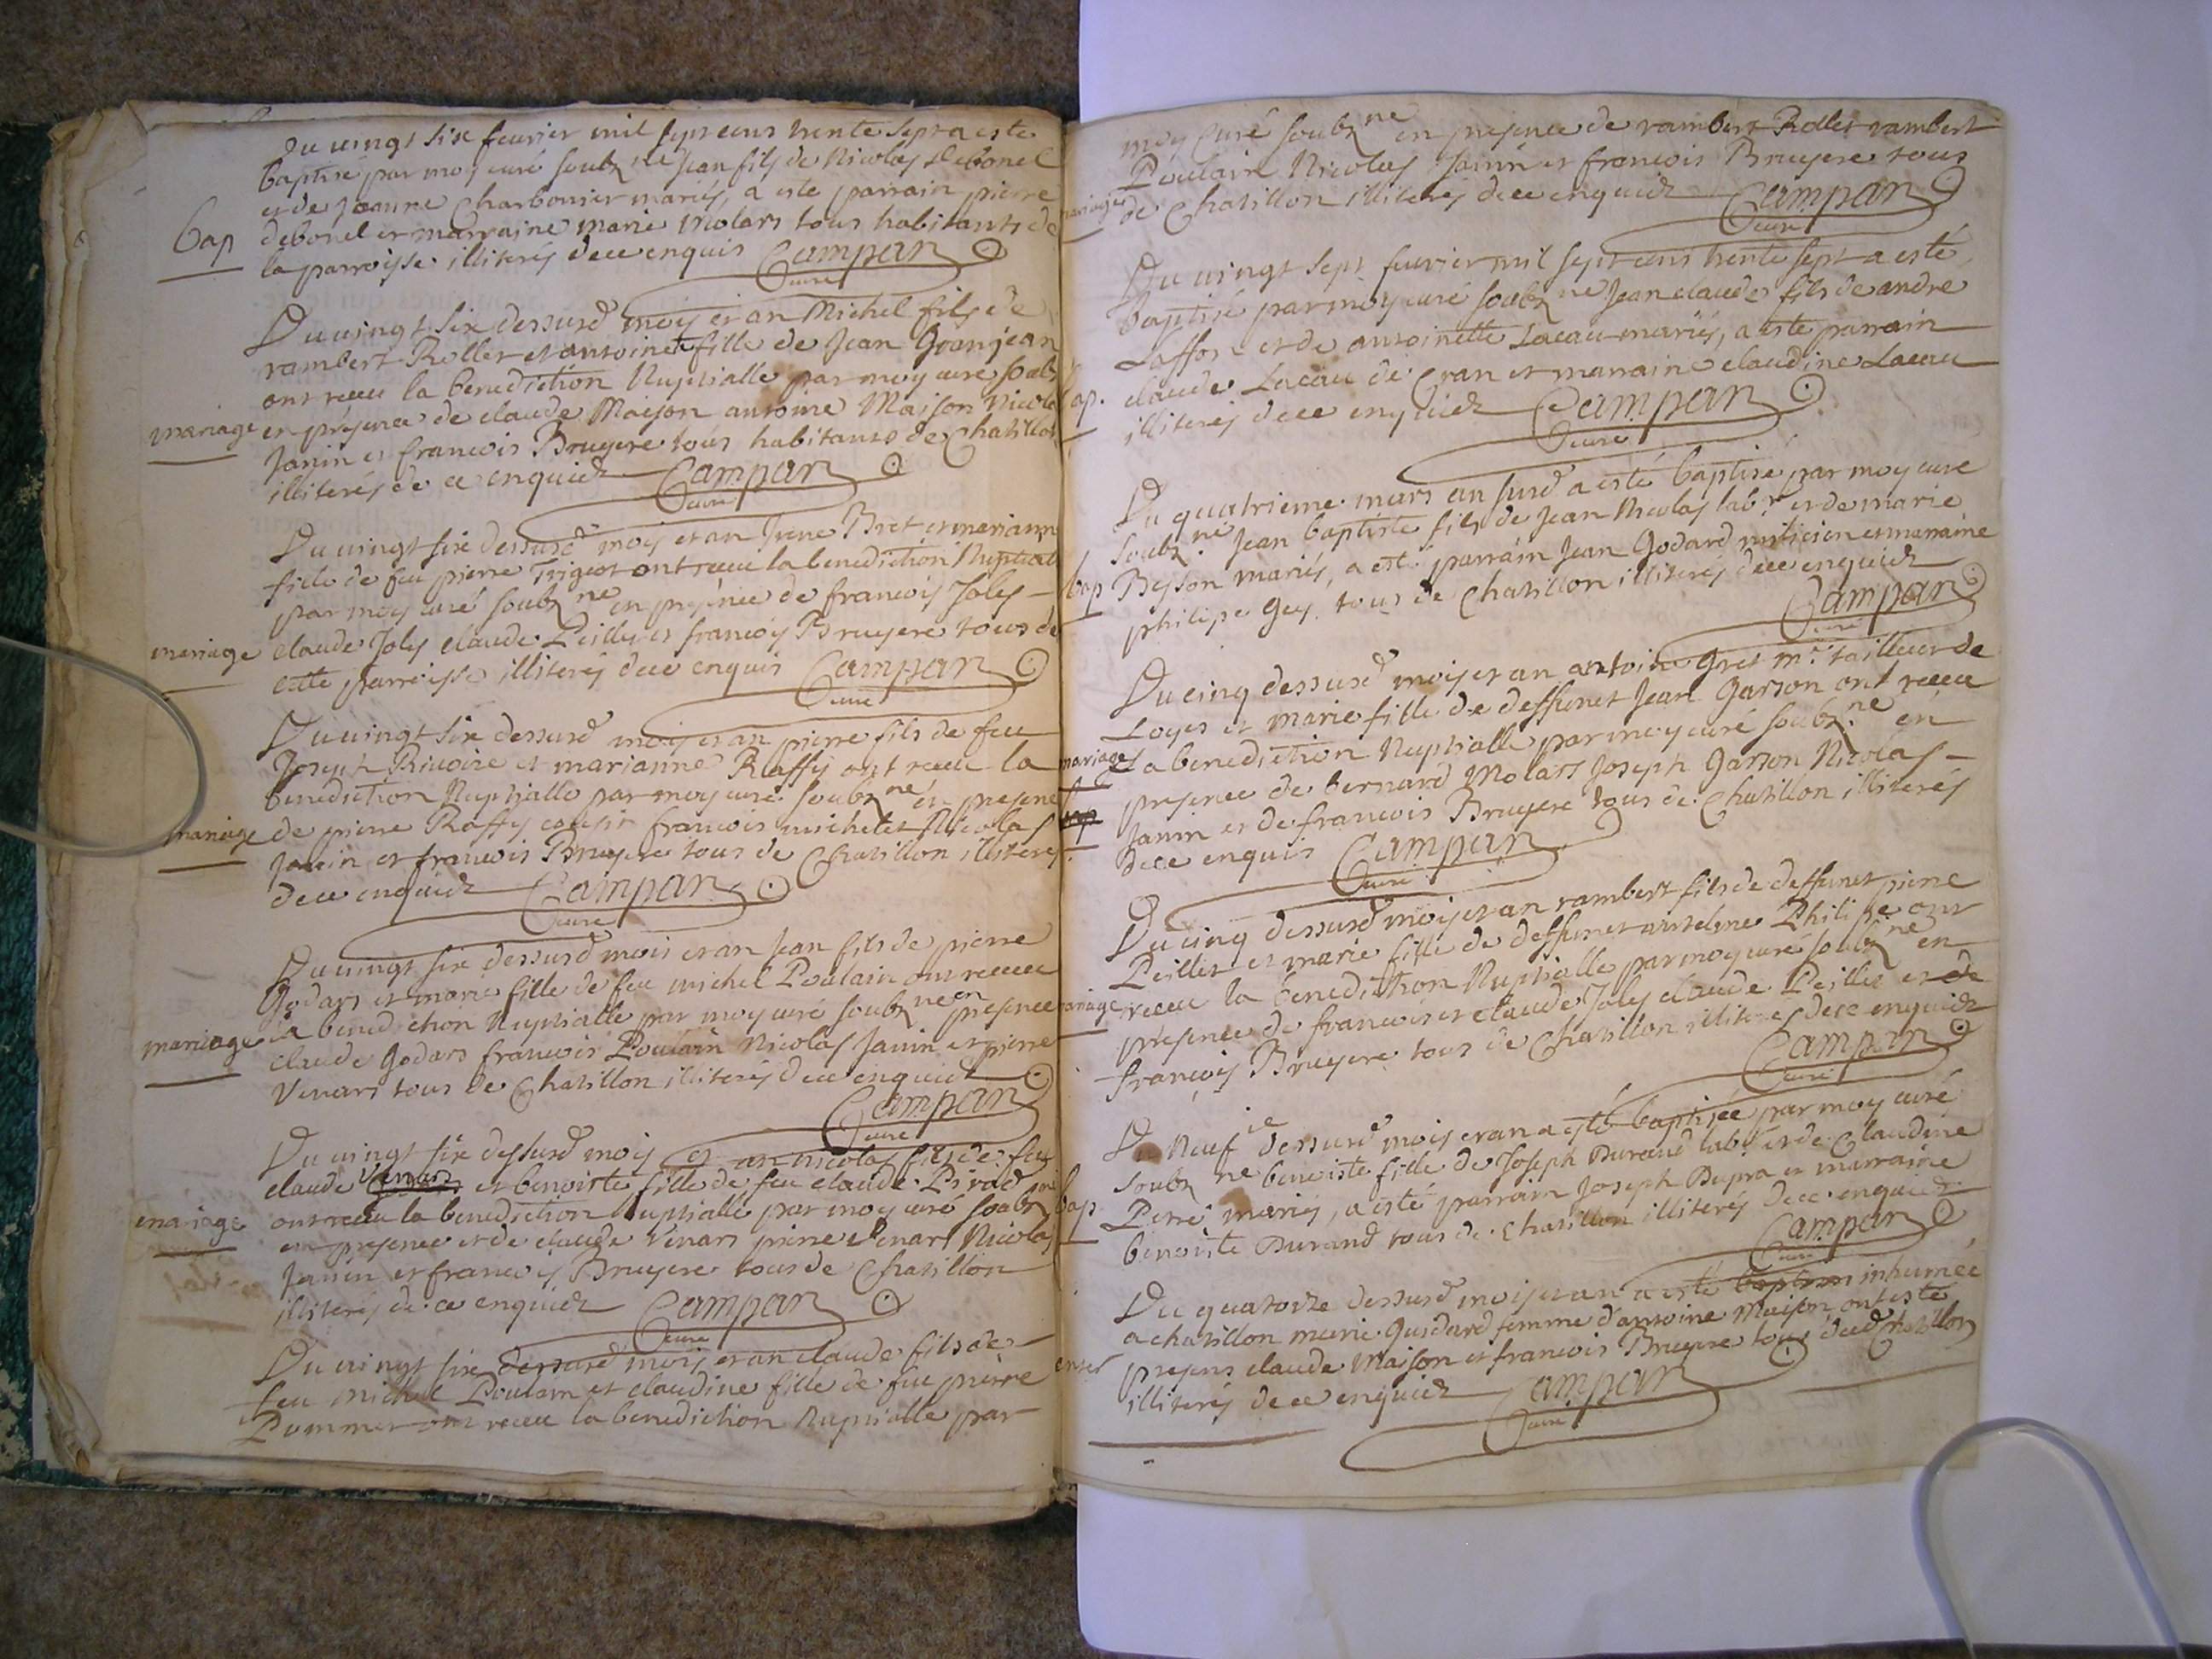 Du vingt six feuvrier mil sept cens trente sept a esté
baptisé par moy curé soubz.ne Jean fils de Nicolas Debonel
et de Jeanne Charbonier mariés, a esté parrain pierre
Bap
debonel et marraine marie molars tous habitants de
la parroisse illiterés de ce enquis Campan
Curé
Du vingt six dessusd moy et an Michel fils de
rambert Rollet et antoinete fille de Jean Granjean
ont receu la benediction Nuptialle par moy curé soubz
mariage
en présence de claude Maison antoine Maison Nicola
Janin et francois Bruyere tous habitants de Chatillon
illiterés de ce enquidz Campan
Curé
Du vingt six dessusd moy et an Bret et mariann
fille de feu pierre Trigeot ont receu la benediction Nuptial
par moy curé soubz.ne en présence de francois Joly
mariage
claude Joly claude Peillet et francois Bruyere tous de
cette parroisse illiterés de ce enquis Campan
Curé
Du vingt six dessusd moy et an pierre fils de feu
Joseph Rivoire et marianne Raffy ont receu la
benediction Nuptialle par moy curé soubz.ne en presence
mariage
de pierre Raffy francois michelet Nicolas
Janin et francois Bruyere tous de Chatillon illiterés
de ce enquidz Campan
Curé
Du vingt six dessusd mois et an Jean fils de pierre
Godars et marie fille de feu michel Poulain ont receu
mariage
la benediction Nuptialle par moy curé soubz.ne en presence
claude Godars francois Poulain Nicolas Janin et pierre
Venars tous de Chatillon illiterés de ce enquidz
Campan
Curé
Du vingt six dessusd moy et an nicolas fils de feu
claude Venars et benoiste fille de feu claude Pirod
mariage
ont receu la benediction Nuptialle par moy curé soubz
en presence et de claude Venars pierre Venars Nicolas
Janin et francois Bruyere tous de Chatillon
illiterés de ce enquidz Campan
Curé
Du vingt six dessusd mois et an claude fils de
feu michel Poulain et claudine fille de feu pierre
Pommer ont receu la benediction Nuptialle par
moy Curé soubz.ne en presence de rambert Rollet rambert
Poulain Nicolas Janin et francois Bruyere tous
mariage
de Chatillon illiterés de ce enquidz Campan
Curé
Du vingt sept feuvrier mil sept cens trente sept a esté
baptisé par moy curé soubz.ne Jean claude fils de andre
Laffon et de antoinette Lacau mariés, a esté parrain
ap.
claude Lacau de Cran et marraine claudine Lacau
illiterés de ce enquidz Campan
Curé
Du quatrieme mars an susd a esté baptisé par moy curé
soubz.ne Jean baptiste fils de Jean Nicolas lab.r et de marie
bap
Besson mariés, a esté parrain Jean Godard milicien et marraine
philipe Gey tous de Chatillon illiterés de ce enquidz
Campan
Curé
Du cinq dessusd mois et an antoine Gret m.e tailleur de
Loyes et marie fille de deffunct Jean Garson ont receu
mariage
la benediction Nuptialle par moy curé soubz.ne en
presence de bernard Molars Joseph Garson Nicolas
bap
Janin et de francois Bruyere tous de Chatillon illiterés
de ce enquis Campan
Curé
Du cinq dessusd mois et an rambert fils de deffunct pierre
Peillet et marie fille de deffunct antelme Philipe ont
mariage
receu la benediction Nuptialle par moy curé soubz.ne en
presence de francois et claude Joly claude Peillet et de
francois Bruyere tous de Chatillon illiterés de ce enquidz
Campan
Curé
Du Neuf ie dessusd mois et an a esté baptisée par moy curé
soubz.ne benoiste fille de Joseph Durand lab.r et de Claudine
bap
Perre mariés, a esté parrain Joseph Dupra et marraine
benoiste Durand tous de Chatillon illiterés de ce enquidz
Campan
Curé
Du quatorze dessusd mois et an a esté inhumée
a chatillon marie Guidard femme d'antoine Maison ont esté
enter
presens claude Maison et francois Bruyere tous dud Chatillon
illiterés de ce enquidz Campan
Curé